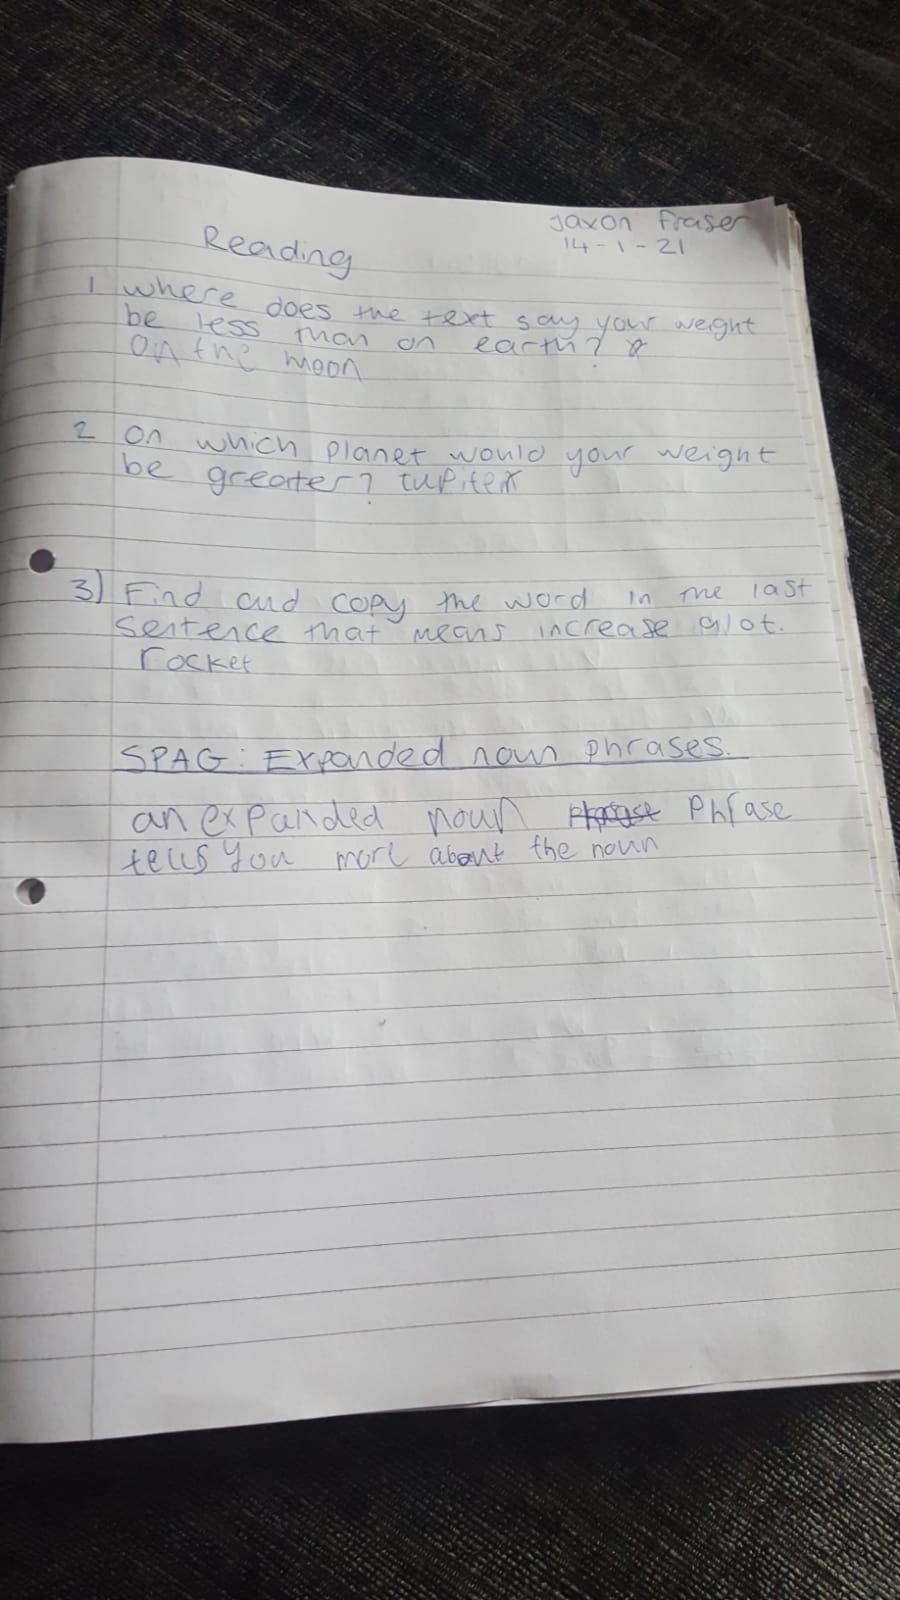 Jaxon Fraser
14-1-21
Reading
1 where does the text say your weight
be less than on earth?
on the moon
2 on which planet would your weight
be greater? Jupiter
3) Find and copy the word in the last
sentence that means increase alot.
rocket
SPAG: Expanded noun phrases.
an expanded noun phrase
tells you more about the noun